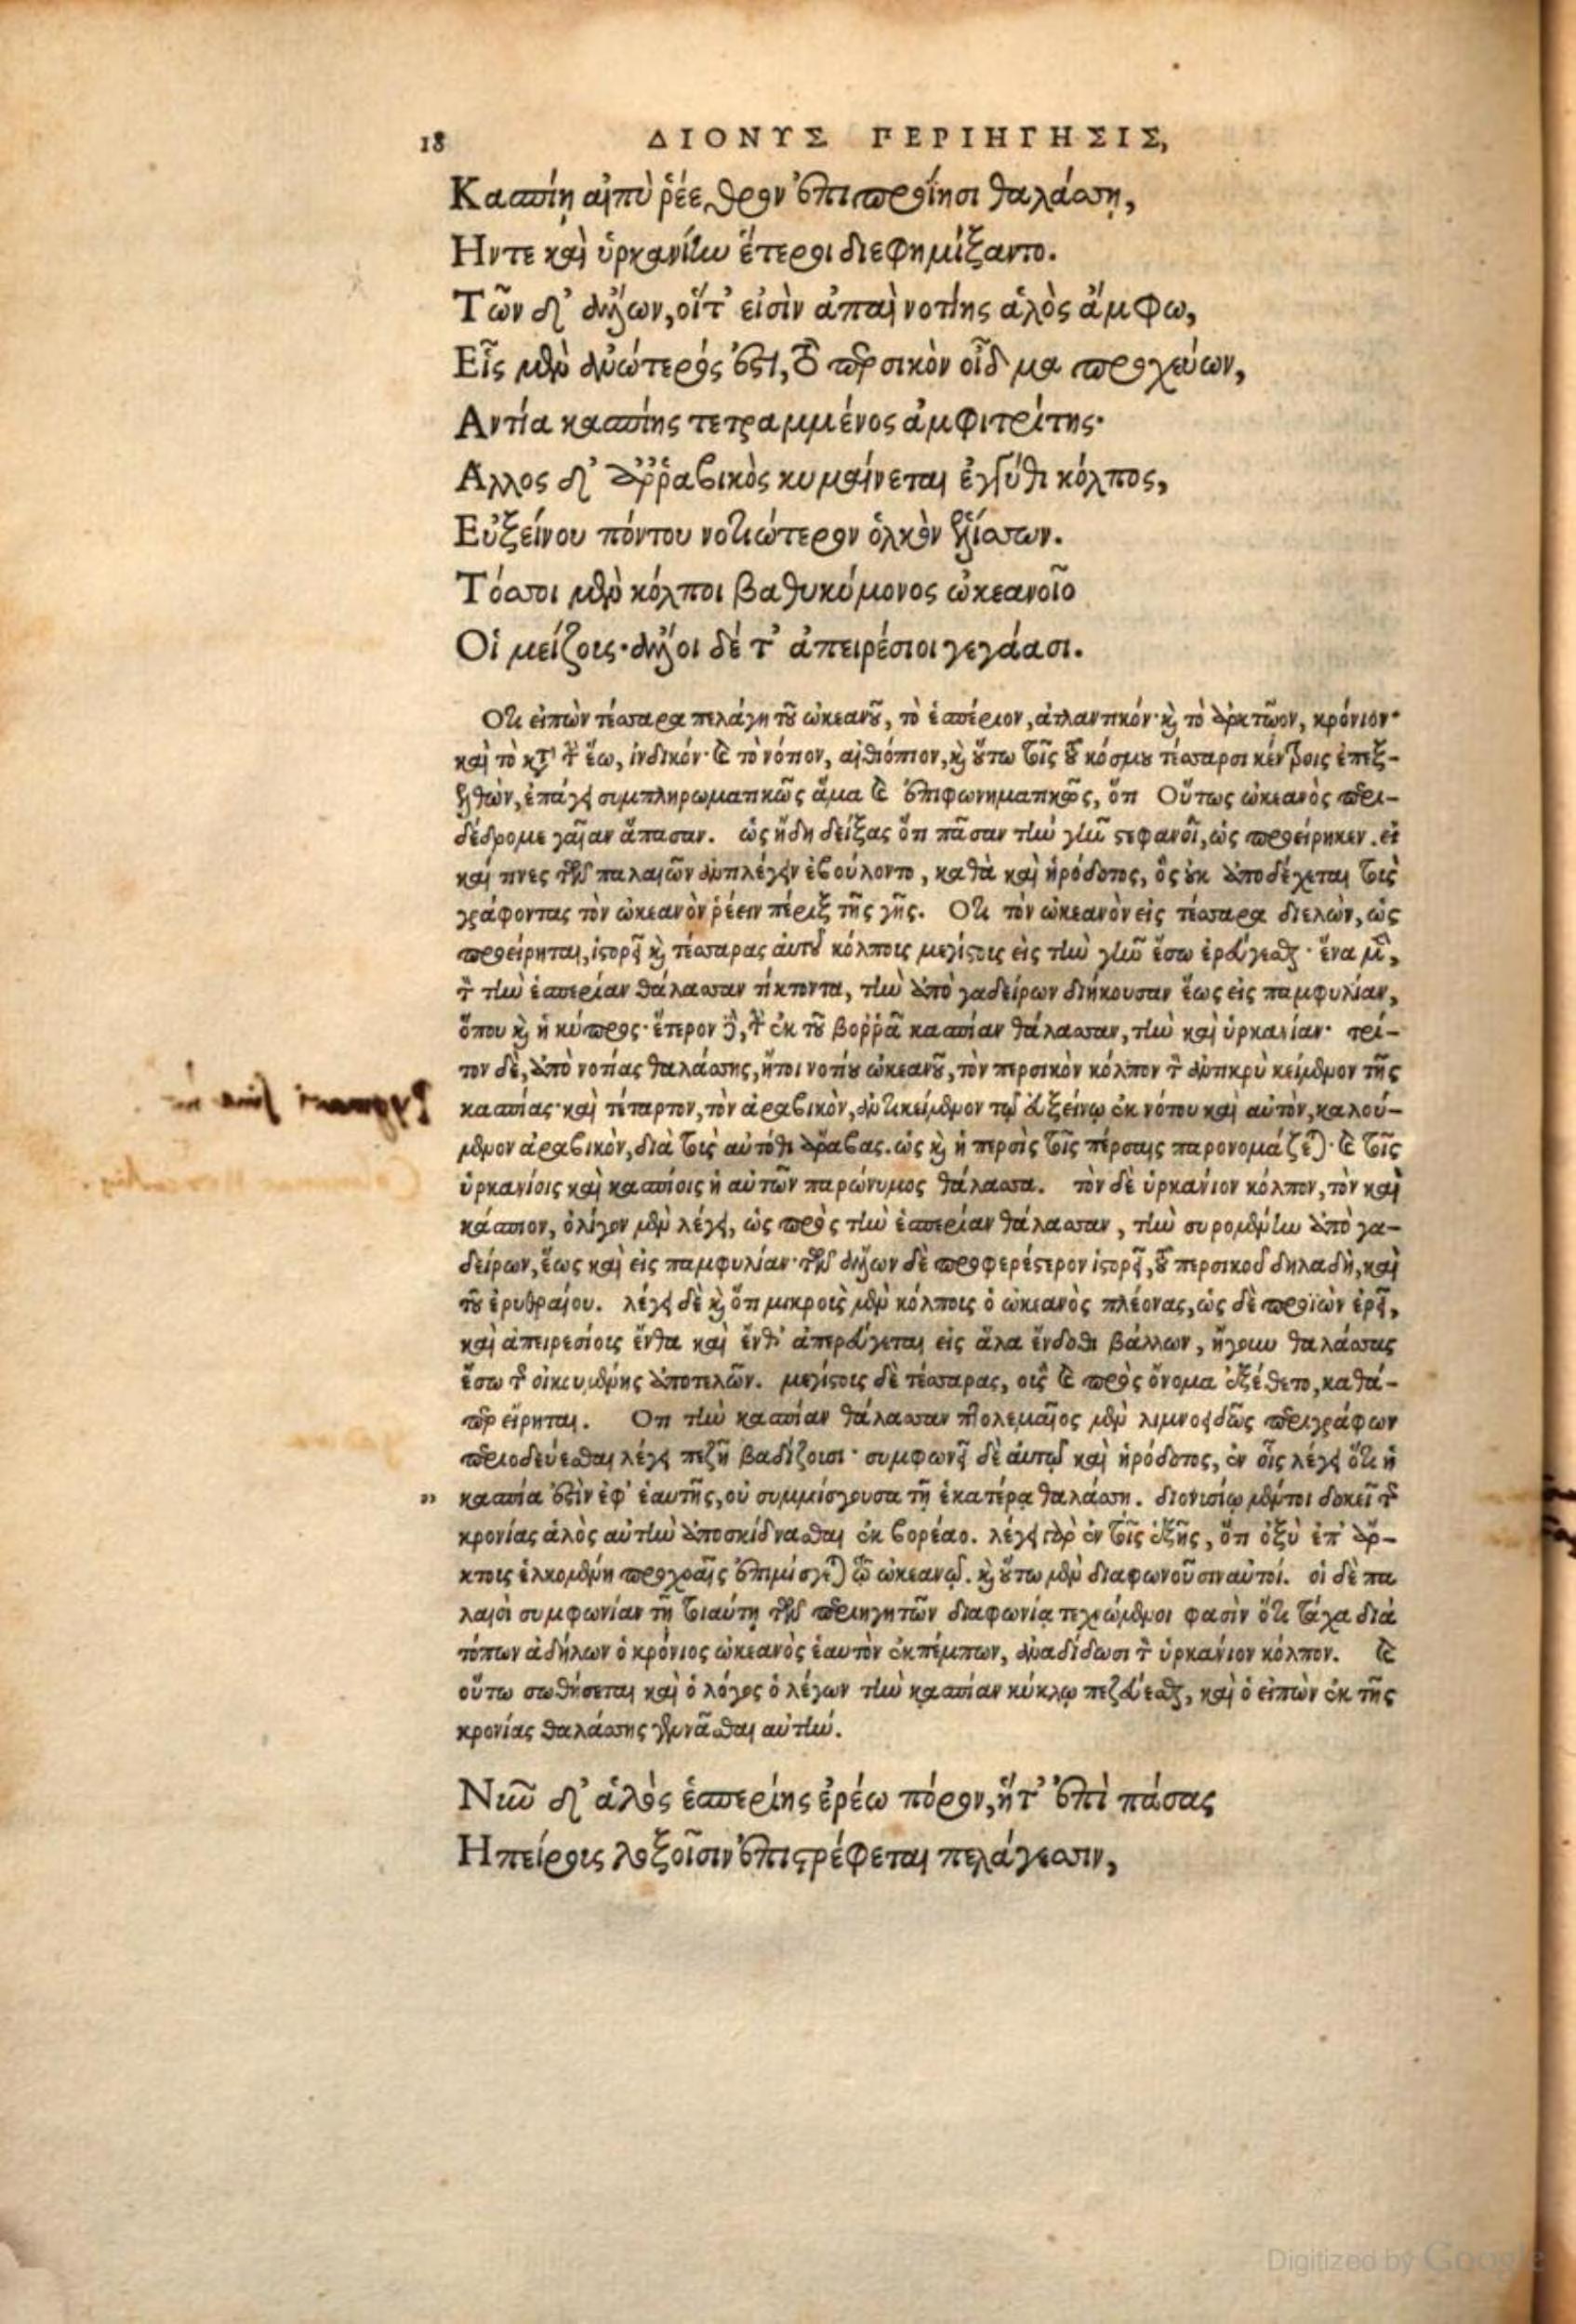 18 ΔΙΟΝΥΣ ΠΕΡΙΗΓΗΣΙΣ,
Κασπίῃ αἰπὺ ῥέεθρον ἐπιπροΐησι θαλάσσῃ,
Ηντε καὶ ὑρκανίην ἕτεροι διεφημίξαντο.
Τῶν δ' ἄλλων, οἵτ' εἰσὶν ἀπαὶ νοτίης ἁλὸς ἄμφω,
Εἷς μὲν ἀνώτερός ἐστι, τὸ περσικὸν οἶδμα προχεύων,
Αντία κασπίης τετραμμένος ἀμφιτρίτης·
Αλλος δ' ἀῤῥαβικὸς κυμαίνεται ἐγγύθι κόλπος,
Εὐξείνου πόντου νοτιώτερον ὁλκὸν ἑλίσσων.
Τόσσοι μὲν κόλποι βαθυκύμονος ὠκεανοῖο
Οἱ μείζους· ἄλλοι δέ τ' ἀπειρέσιοι γεγάασι.
Οτι εἰπὼν τέσσαρα πελάγη τοῦ ὠκεανοῦ, τὸ ἑσπέριον, ἀτλαντικόν· καὶ τὸ ἀρκτῶον, κρόνιον·
καὶ τὸ κατὰ τὴν ἕω, ἰνδικόν· καὶ τὸ νότιον, αἰθιόπιον, καὶ οὕτω τοῖς τοῦ κόσμου τέσσαρσι κέντροις ἐπεξ-
ελθὼν, ἐπάγει συμπληρωματικῶς ἅμα καὶ ἐπιφωνηματικῶς, ὅτι Οὕτως ὠκεανὸς περι-
δέδρομε γαῖαν ἅπασαν. ὡς ἤδη δείξας ὅτι πᾶσαν τὴν γῆν στεφανοῖ, ὡς προείρηκεν. εἰ
καί τινες τῶν παλαιῶν ἀντιλέγειν ἐβούλοντο, καθὰ καὶ ἡρόδοτος, ὃς οὐκ ἀποδέχεται τοὺς
γράφοντας τὸν ὠκεανὸν ῥέειν πέριξ τῆς γῆς. Οτι τὸν ὠκεανὸν εἰς τέσσαρα διελὼν, ὡς
προείρηται, ἱστορεῖ καὶ τέσσαρας αὐτοῦ κόλπους μεγίστους εἰς τὴν γῆν ἔσω ἐρεύγεσθαι· ἕνα μὲν,
τὸν τὴν ἑσπερίαν θάλασσαν τίκτοντα, τὴν ἀπὸ γαδείρων διήκουσαν ἕως εἰς παμφυλίαν,
ὅπου καὶ ἡ κύπρος· ἕτερον δὲ, τὴν ἐκ τοῦ βοῤῥᾶ κασπίαν θάλασσαν, τὴν καὶ ὑρκανίαν· τρί-
τον δὲ, ἀπὸ νοτίας θαλάσσης, ἤτοι νοτίου ὠκεανοῦ, τὸν περσικὸν κόλπον τὸν ἀντικρὺ κείμενον τῆς
κασπίας· καὶ τέταρτον, τὸν ἀραβικὸν, ἀντικείμενον τῷ εὐξείνῳ ἐκ νότου καὶ αὐτὸν, καλού-
μενον ἀραβικὸν, διὰ τοὺς αὐτόθι ἄραβας. ὡς καὶ ἡ περσὶς τοῖς πέρσαις παρονομάζεται· καὶ τοῖς
ὑρκανίοις καὶ κασπίοις ἡ αὐτῶν παρώνυμος θάλασσα. τὸν δὲ ὑρκάνιον κόλπον, τὸν καὶ
κάσπιον, ὀλίγον μὲν λέγει, ὡς πρὸς τὴν ἑσπερίαν θάλασσαν, τὴν συρομένην ἀπὸ γα-
δείρων, ἕως καὶ εἰς παμφυλίαν· τῶν ἄλλων δὲ προφερέστερον ἱστορεῖ, τοῦ περσικοῦ δηλαδὴ, καὶ
τοῦ ἐρυθραίου. λέγει δὲ καὶ ὅτι μικροὺς μὲν κόλπους ὁ ὠκεανὸς πλέονας, ὡς δὲ προϊὼν ἐρεῖ,
καὶ ἀπειρεσίους ἔνθα καὶ ἔνθ' ἀπερεύγεται εἰς ἅλα ἔνδοθι βάλλων, ἤγουν θαλάσσας
ἔσω τῆς οἰκουμένης ἀποτελῶν. μεγίστους δὲ τέσσαρας, οὓς καὶ πρὸς ὄνομα ἐξέθετο, καθά-
περ εἴρηται. Οτι τὴν κασπίαν θάλασσαν πτολεμαῖος μὲν λιμνοειδῶς περιγράφων
περιοδεύεσθαι λέγει πεζῇ βαδίζουσι· συμφωνεῖ δὲ αὐτῷ καὶ ἡρόδοτος, ἐν οἷς λέγει ὅτι ἡ
" κασπία ἐστὶν ἐφ' ἑαυτῆς, οὐ συμμίσγουσα τῇ ἑκατέρᾳ θαλάσσῃ. διονισίῳ μέντοι δοκεῖ τῆς
κρονίας ἁλὸς αὐτὴν ἀποσκίδνασθαι ἐκ βορέαο. λέγει γὰρ ἐν τοῖς ἑξῆς, ὅτι ὀξὺ ἐπ' ἄρ-
κτους ἑλκομένη προχοαῖς ἐπιμίσγεται τῷ ὠκεανῷ. καὶ οὕτω μὲν διαφωνοῦσιν αὐτοί. οἱ δὲ πα
λαιοὶ συμφωνίαν τῇ τοιαύτῃ τῶν περιηγητῶν διαφωνίᾳ τεχνώμενοι φασὶν ὅτι τάχα διὰ
τόπων ἀδήλων ὁ κρόνιος ὠκεανὸς ἑαυτὸν ἐκπέμπων, ἀναδίδωσι τὸν ὑρκάνιον κόλπον. καὶ
οὕτω σωθήσεται καὶ ὁ λόγος ὁ λέγων τὴν κασπίαν κύκλῳ πεζεύεσθαι, καὶ ὁ εἰπὼν ἐκ τῆς
κρονίας θαλάσσης γεννᾶσθαι αὐτήν.
Νῦν δ' ἁλὸς ἑσπερίης ἐρέω πόρον, ἥτ' ἐπὶ πάσας
Ηπείρους λοξοῖσιν ἐπιστρέφεται πελάγεσσιν,
Digitized by Google